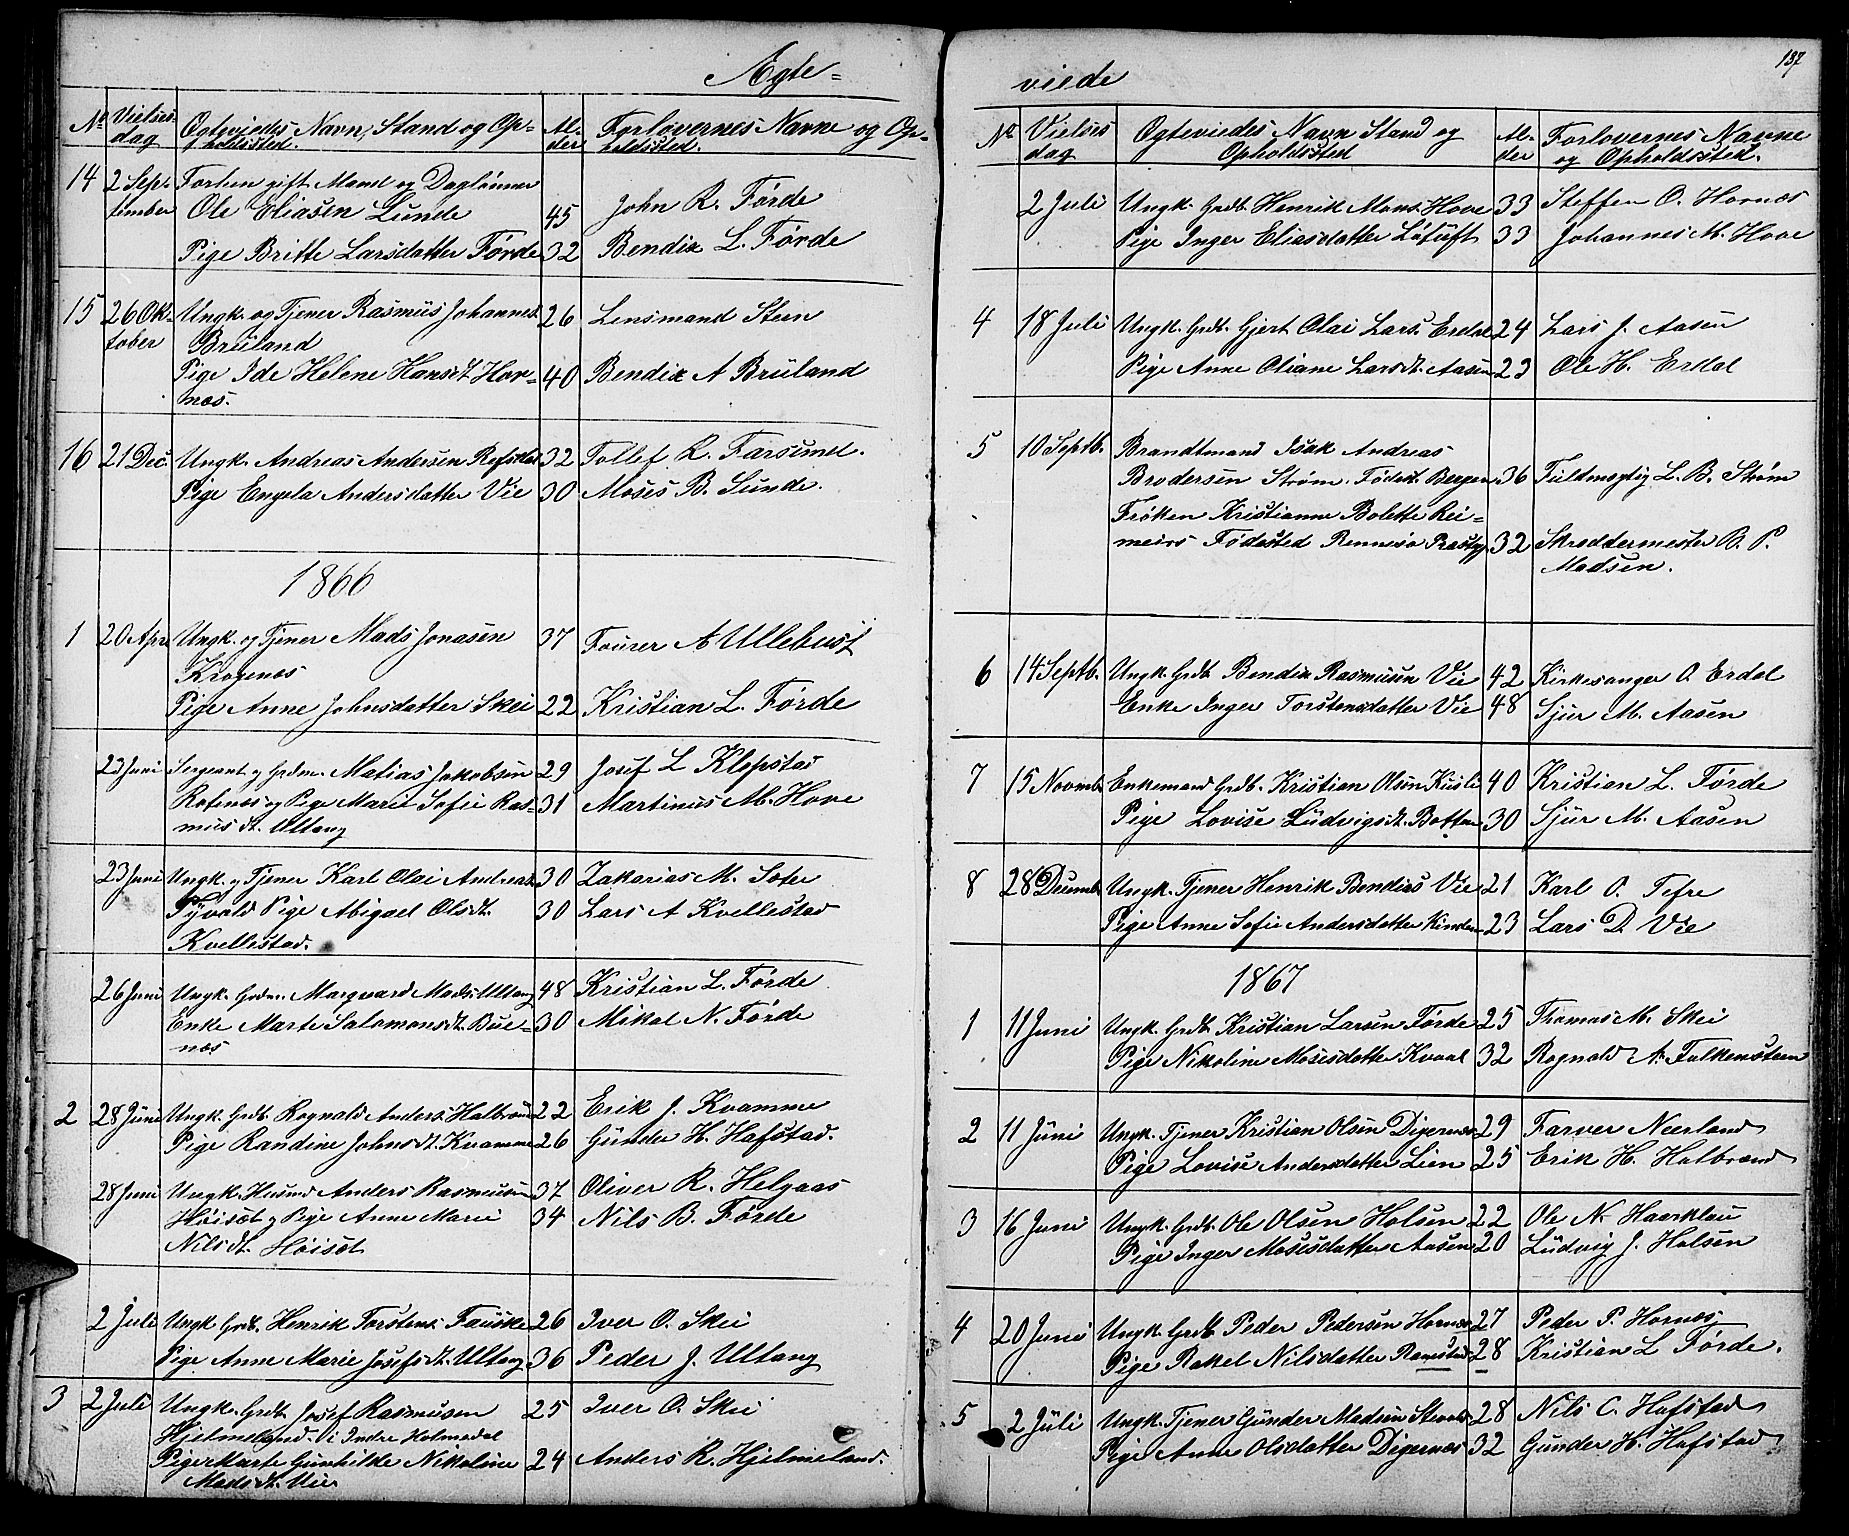 Ægte=
No Vielses- Ogteviedes Navn, Stand og Op- Al- Forlovernes Navne og Op-
dag holdssted. der holdssted.
14 2 Sep- Forhen gift Mand og Daglønner
tember Ole Eliasen Lunde 45 John R. Førde
Pige Britte Larsdatter Førde 32 Bendix L. Førde
15 26 Ok- Ungk. og Tjener Rasmus Johannes. 26 Lensmand Steen
tober Bruland
Pige Ide Helene Hansdt. Hor- 40 Bendix A Bruland
næs.
16 21 Dec. Ungk. Andreas Andersen Refsdal 32 Tollef R. Farsund.
Pige Engela Andersdatter Vie 30 Moses B. Sunde.
1866
1 20 Apri Ungk. og Tjener Mads Jonasen 37 Fourer A Ullebust
Krogenæs
Pige Anne Johnsdatter Skei 22 Kristian L. Førde
23 Juni Sergeant og Grdm. Matias Jakobsen 29 Josef L Klopstad
Rofnæs og Pige Marie Sofie Ras- 31 Martinus M. Hove
musdt. Ultang
23 Juni Ungk. og Tjener Karl Olai Andreas. 30 Zakarias M. Soter
Tyvold Pige Abigael Olsdt. 30 Lars A Kvellestad
Kvellestad.
26 Juni Ungk. Grdm. Marqvard Mads. Ultang 48 Kristian L. Førde
Enke Marte Salomonsdt. Bue- 30 Mikal N. Førde
næs
2 28 Juni Ungk. Grdb. Rognald Anders. Halbrend 22 Erik J. Kvamme
Pige Randine Johnsdt. Kvamme 26 Gunder H. Hafstad.
28 Juni Ungk. Husmd Anders Rasmusen 37 Oliver R. Helgaas
Høisæt og Pige Anne Marie 34 Nils B. Førde
Nilsdt. Høisæt
2 Juli Ungk Grdb. Henrik Torstens. Fauske 26 Iver O. Skei
Pige Anne Marie Josefsdt. Ultang 36 Peder J. Ultang
3 2 Juli Ungk. Grdb. Josef Rasmusen 25 Iver O. Skei
Hjelmeland i Indre Holmedal
Pige Marte Gunhilde Nikoline 24 Anders R. Hjelmeland.
Madsdt. Vie
137
viede
No Vielses Ogteviedes Navn Stand og Al- Forlovernes Navne
dag Opholdssted der og Opholdssted.
2 Juli Ungk. Grdb. Henrik Mons. Hove 33 Steffen O. Hornæs
Pige Inger Eliasdatter Løtuft 33 Johannes M. Hove
4 18 Juli Ungk. Grdb. Gjert Olai Lars. Erdal 24 Lars J. Aasen
Pige Anne Oliane Larsdt. Aasen 23 Ole H. Erdal
5 10 Septb. Brandtmand Isak Andreas
Brodersen Strøm. Fødest. Bergen 36 Fuldmegtig L. B. Strøm
Frøken Kristianne Bolette Rei-
meirs Fødested Rennesø Præstgj 32 Skreddermester B. P.
Madsen.
6 14 Septb. Ungk. Grdb. Bendix Rasmusen Vie 42 Kirkesanger O. Erdal
Enke Inger Torstensdatter Vie 48 Sjur M. Aasen
7 15 Novmb Enkemand Grdb. Kristian Olsen Kusli 40 Kristian L. Førde
Pige Lovise Ludvigsdt. Botten 30 Sjur M. Aasen
8 28 Deumb. Ungk. Tjener Henrik Bendixs Vie 21 Karl O. Tefre
Pige Anne Sofie Andersdatter Kinden 23 Lars D. Vie
1867
1 11 Juni Ungk. Grdb. Kristian Larsen Førde 25 Thomas M. Skei
Pige Nikoline Mosesdatter Kvaal 32 Rognald A. Falkensteen
2 11 Juni Ungk. Tjener Kristian Olsen Digernæs 29 Farver Neerland
Pige Lovise Andersdatter Lien 25 Erik H. Halbrænd
3 16 Juni Ungk. Grdb. Ole Olsen Holsen 22 Ole N. Haarklau
Pige Inger Mosesdatter Aasen 20 Ludvig J. Holsen
4 20 Juni Ungk. Grdb. Peder Pedersen Hornæs 27 Peder P. Hornæs,
Pige Rakel Nilsdatter Ramstad 28 Kristian L Førde.
5 2 Juli Ungk. Tjener Gunder Madsen Steens 28 Nils C. Hafstad
Pige Anne Olsdatter Digernæs 32 Gunder H. Hafstad